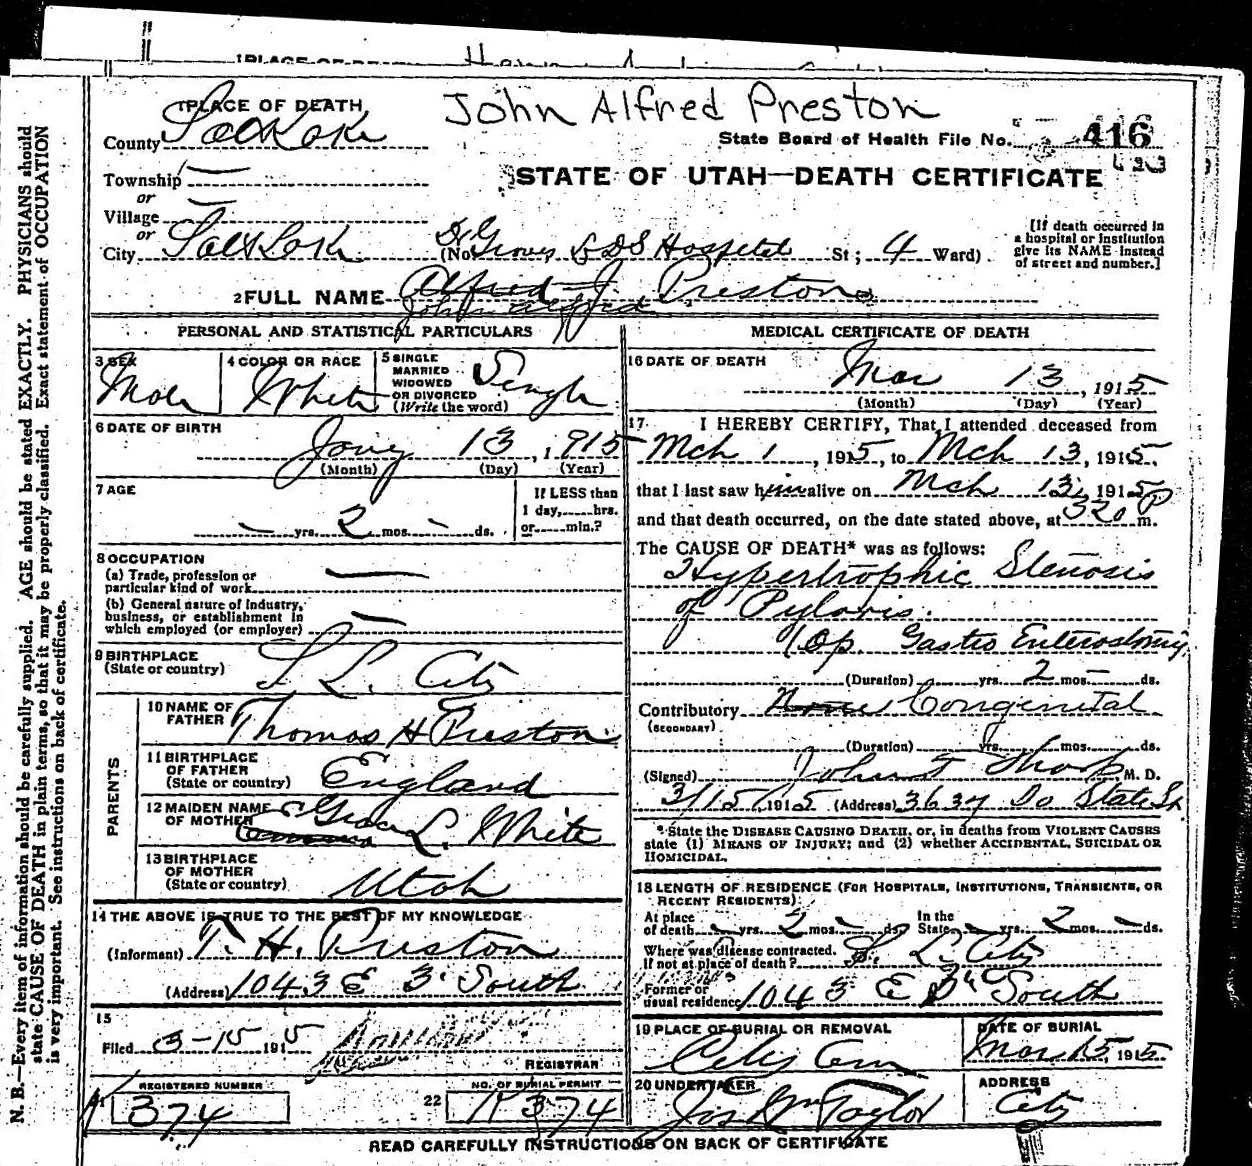 1 PLACE OF DEATH
John Alfred Preston
County Salt Lake
State Board of Health File No. 416
Township —
STATE OF UTAH—DEATH CERTIFICATE
or
Village —
or
City Salt Lake (No. Dr Groves LDS Hospital St; 4 Ward)
[If death occurred in
a hospital or institution
give its NAME instead
of street and number.]
2 FULL NAME Alfred J. Preston
John Alfred
PERSONAL AND STATISTICAL PARTICULARS
3 SEX Male
4 COLOR OR RACE White
5 SINGLE
MARRIED
WIDOWED
OR DIVORCED
(Write the word) Single
6 DATE OF BIRTH
Jany 13, 1915
(Month) (Day) (Year)
7 AGE
— yrs. 2 mos. — ds.
If LESS than
1 day,......hrs.
or......min.?
8 OCCUPATION
(a) Trade, profession or
particular kind of work —
(b) General nature of industry,
business, or establishment in
which employed (or employer) —
9 BIRTHPLACE
(State or country) S L. City
PARENTS
10 NAME OF
FATHER Thomas H Preston
11 BIRTHPLACE
OF FATHER
(State or country) England
12 MAIDEN NAME
OF MOTHER Grace L. White
13 BIRTHPLACE
OF MOTHER
(State or country) Utah
14 THE ABOVE IS TRUE TO THE BEST OF MY KNOWLEDGE
(Informant) T. H. Preston
(Address) 1043 E 3' South
15
Filed 3-15 1915
REGISTRAR
REGISTERED NUMBER
374
22
NO. OF BURIAL PERMIT
374
MEDICAL CERTIFICATE OF DEATH
16 DATE OF DEATH
Mar 13, 1915
(Month) (Day) (Year)
17 I HEREBY CERTIFY, That I attended deceased from
Mch 1, 1915, to Mch 13, 1915,
that I last saw him alive on Mch 13, 1915
and that death occurred, on the date stated above, at 320 P m.
The CAUSE OF DEATH* was as follows:
Hypertrophic Stenosis
of Pyloris.
(Op. Gastro Enterostomy.
(Duration) yrs. 2 mos. — ds.
Contributory None Congenital
(SECONDARY)
(Duration) yrs. mos. ds.
(Signed) John T Thorp M. D.
3/15, 1915 (Address) 3637 So State St.
*State the DISEASE CAUSING DEATH, or, in deaths from VIOLENT CAUSES
state (1) MEANS OF INJURY; and (2) whether ACCIDENTAL, SUICIDAL OR
HOMICIDAL.
18 LENGTH OF RESIDENCE (FOR HOSPITALS, INSTITUTIONS, TRANSIENTS, OR
RECENT RESIDENTS)
At place
of death — yrs. 2 mos. — ds.
In the
State — yrs. 2 mos. — ds.
Where was disease contracted,
If not at place of death? S. L. City
Former or
usual residence 1043 E 3d South
19 PLACE OF BURIAL OR REMOVAL
City Cem
DATE OF BURIAL
Mar 15, 1915
20 UNDERTAKER
Jos Wm Taylor
ADDRESS
City
READ CAREFULLY INSTRUCTIONS ON BACK OF CERTIFICATE
N. B.—Every item of information should be carefully supplied. AGE should be stated EXACTLY. PHYSICIANS should
state CAUSE OF DEATH in plain terms, so that it may be properly classified. Exact statement of OCCUPATION
is very important. See instructions on back of certificate.